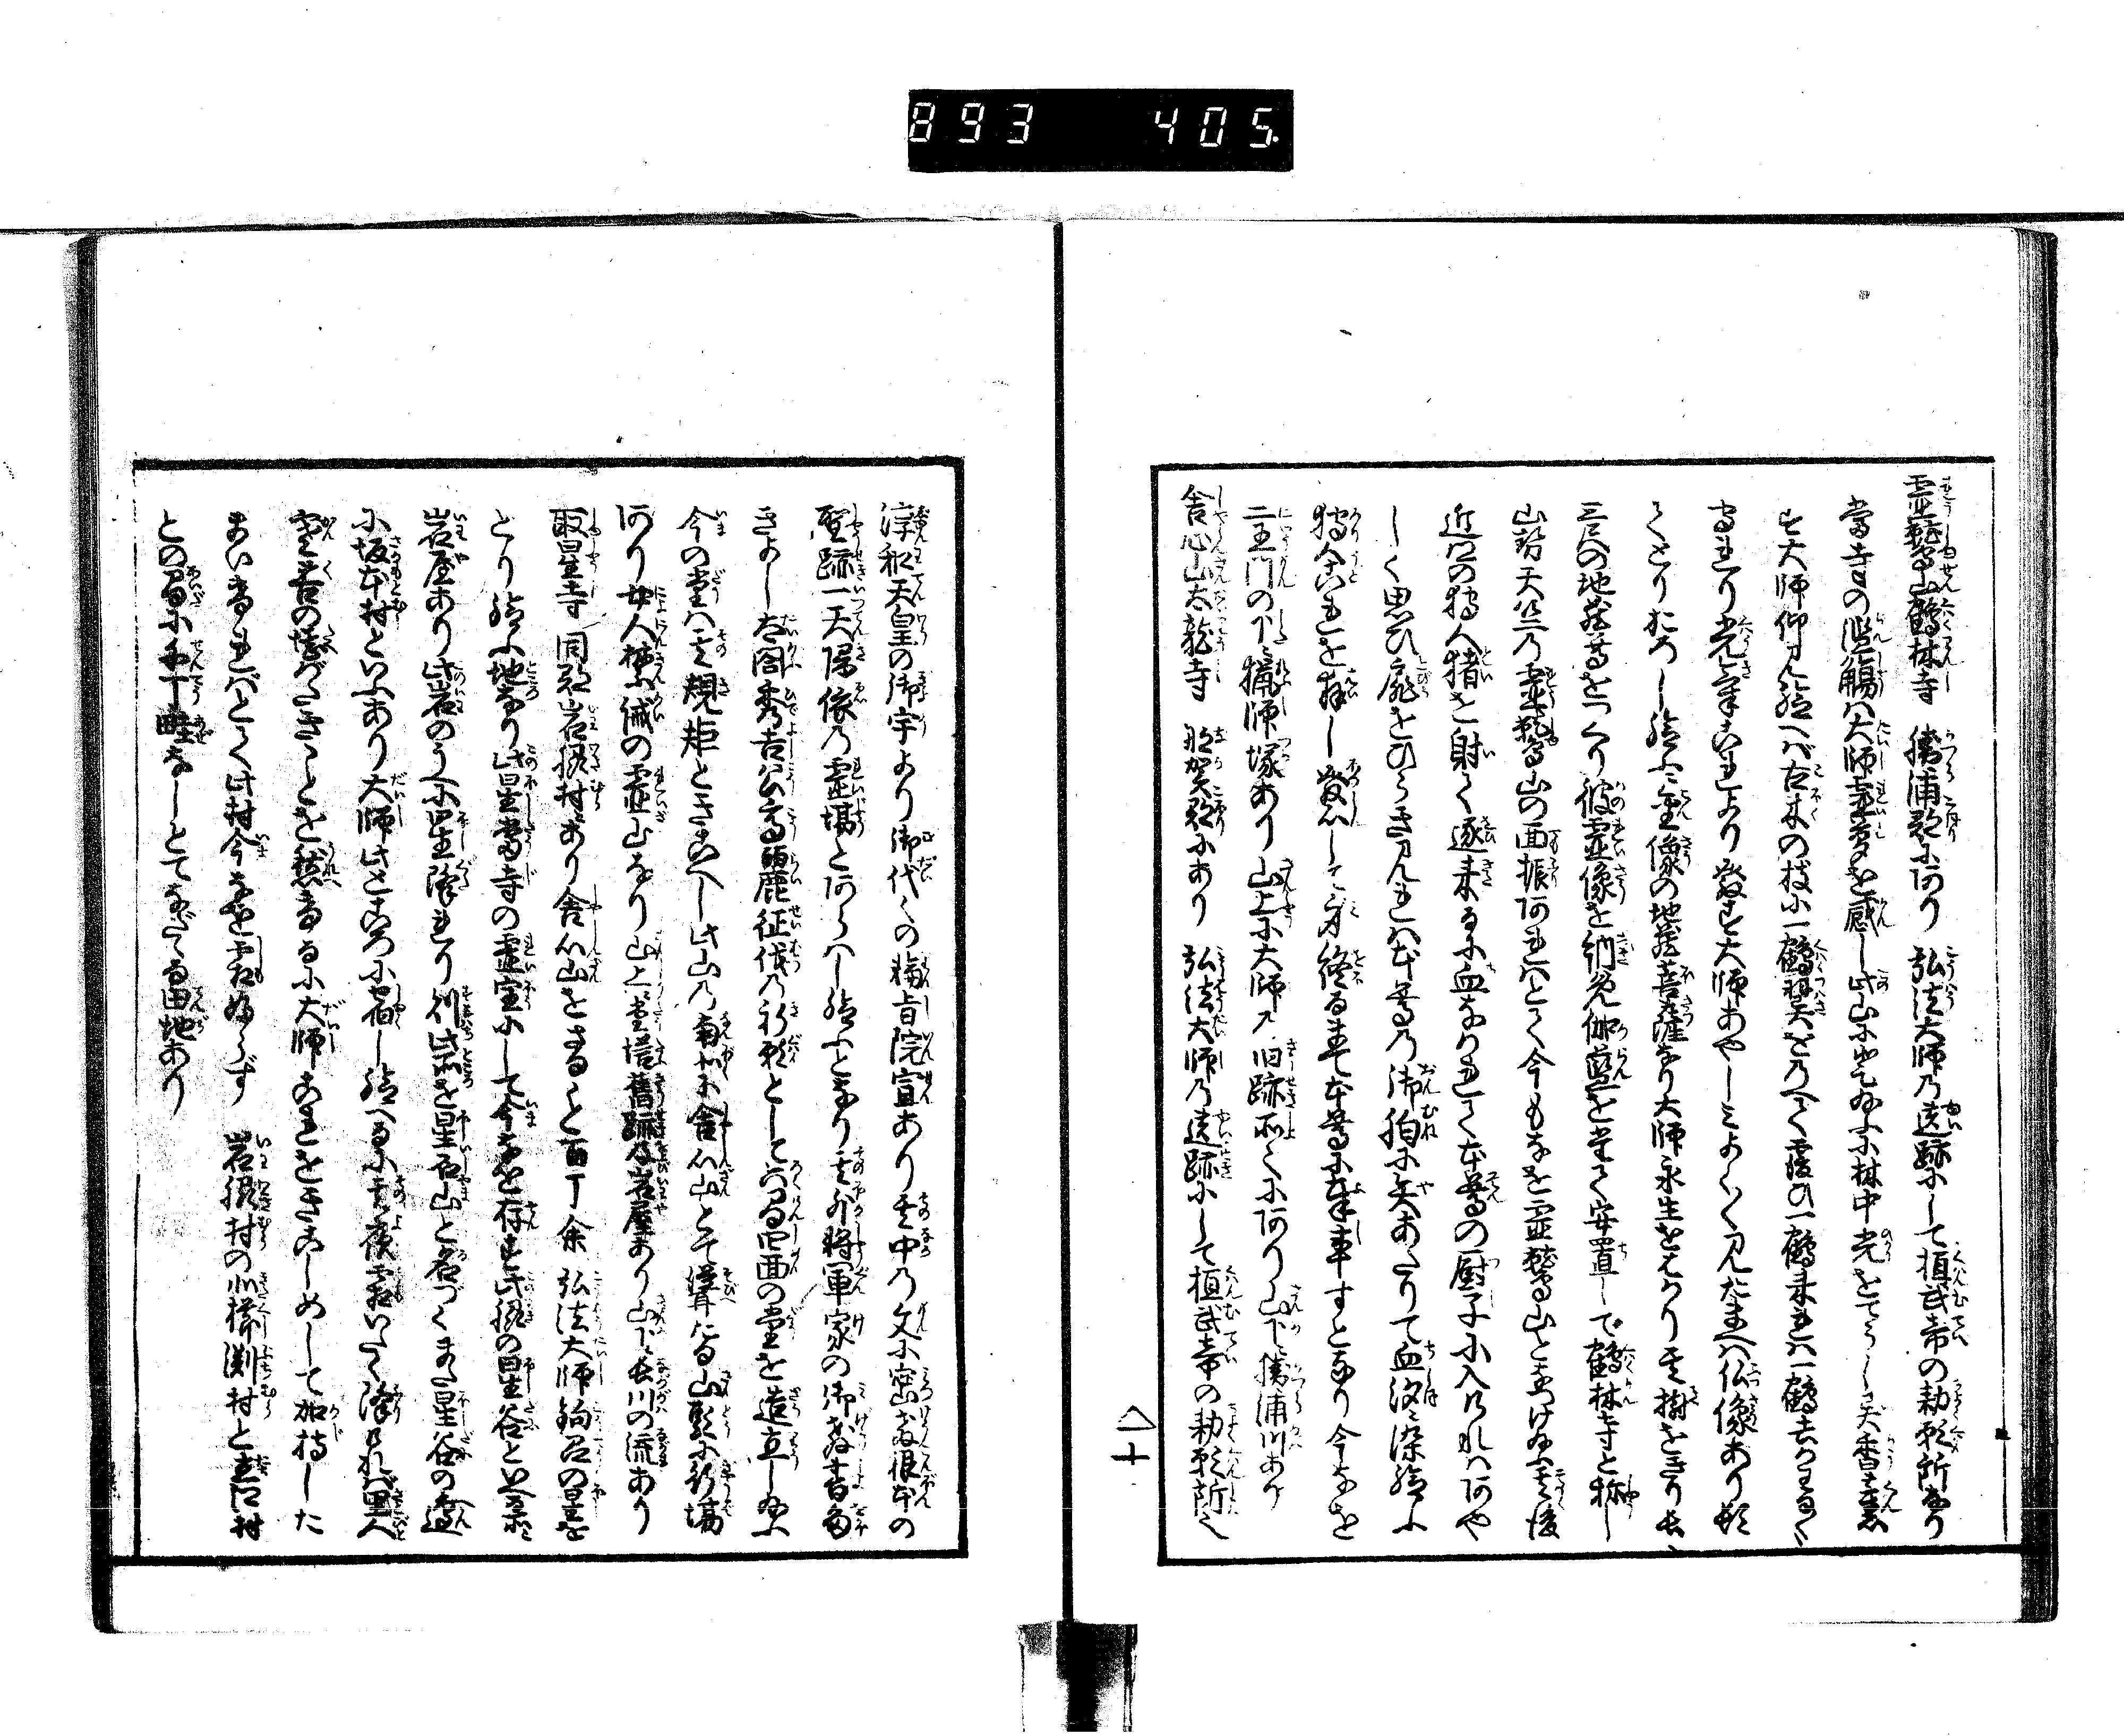 893 405.
霊鷲山鶴林寺 勝浦郡にあり 弘法大師の遺跡にして桓武帝の勅願所なり
当寺の濫觴は大師霊夢を感し此山に登給ふに林中光をてらし異香薫
す大師仰見給へば古木の枝に一鶴翼をのへて覆ひ一鶴来れは一鶴去かはる〳〵
守れり光これより発す大師あやしミよく〳〵見たまへは仏像あり頓
てとりおろし給ふに金像の地蔵菩薩なり大師永生をはかり其樹をきり長
三尺の地蔵尊をつくり彼霊像を納免伽藍を建て安置して鶴林寺と称し
山勢天竺乃霊鷲山の面振あれはとて今もなを霊鷲山と号けり其後
近辺の猟人猪を射て逐来るに血なかれて本尊の厨子に入けれはあや
しく思ひ扉をひらき見れは本尊乃御胸に矢あたりて血汐に染給ふ
猟人これを拝し発心して身終るまて本尊に奉事すとなり今なを
二王門の下に猟師塚あり山上に大師の旧跡所〳〵にあり山下に勝浦川あり
舎心山太龍寺 那賀郡にあり 弘法大師乃遺跡にして桓武帝の勅願所也
十
淳和天皇の御宇より御代〳〵の綸旨院宣あり其中の文に密教根本の
聖跡一天帰依乃霊場とあらハし給ふとなり其外将軍家の御教書多
きよし太閤秀吉公高麗征伐乃祈願として六間四面の堂を造立し給ふ
今の堂ハ其規矩ときこへし此山乃南に舎心山とて聳たる山聖に行場
あり女人禁戒の霊山なり山上に堂塔旧跡及岩屋あり山下に長川の流あり
取星寺 同郡岩脇村にあり舎心山をさること百丁余 弘法大師鉤召の星を
とり給ふ地なり此星当寺の霊宝にして今なを存す此脇の星谷といふ所に
岩屋あり此岩のうへに星降れり則此所を星石山と名づくまた星谷の辺
に坂本村といふあり大師此ところに宿し給へるに其夜霜いたく降けれは里人
寒苦の堪がたきことを愁けるに大師これをきこしめして加持した
まいければとて此村今なを霜ふらず 岩脇村の北楠渕村と立江村
との間に千丁畦なしとてなだらなる田地あり